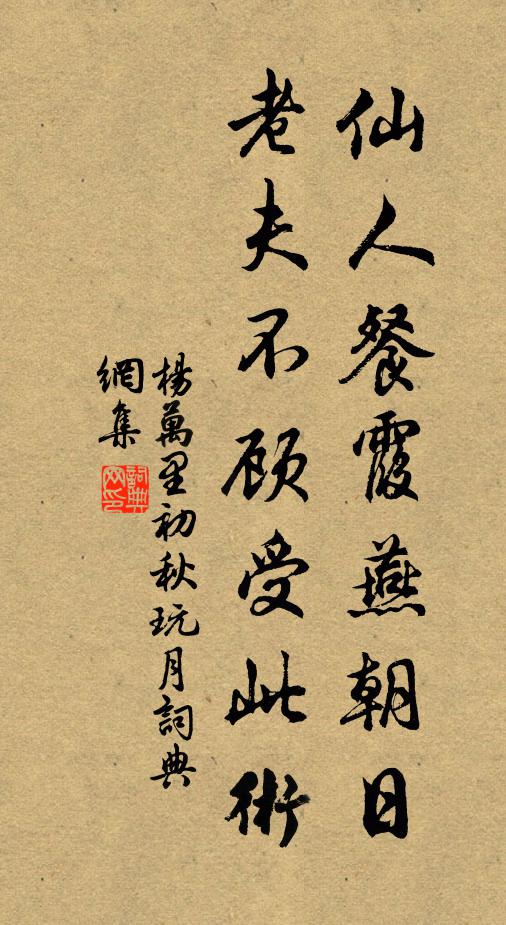 仙人餐霞燕朝日
老夫不顾受此術
楊萬里初秋玩月詞典
網集
詞典网印